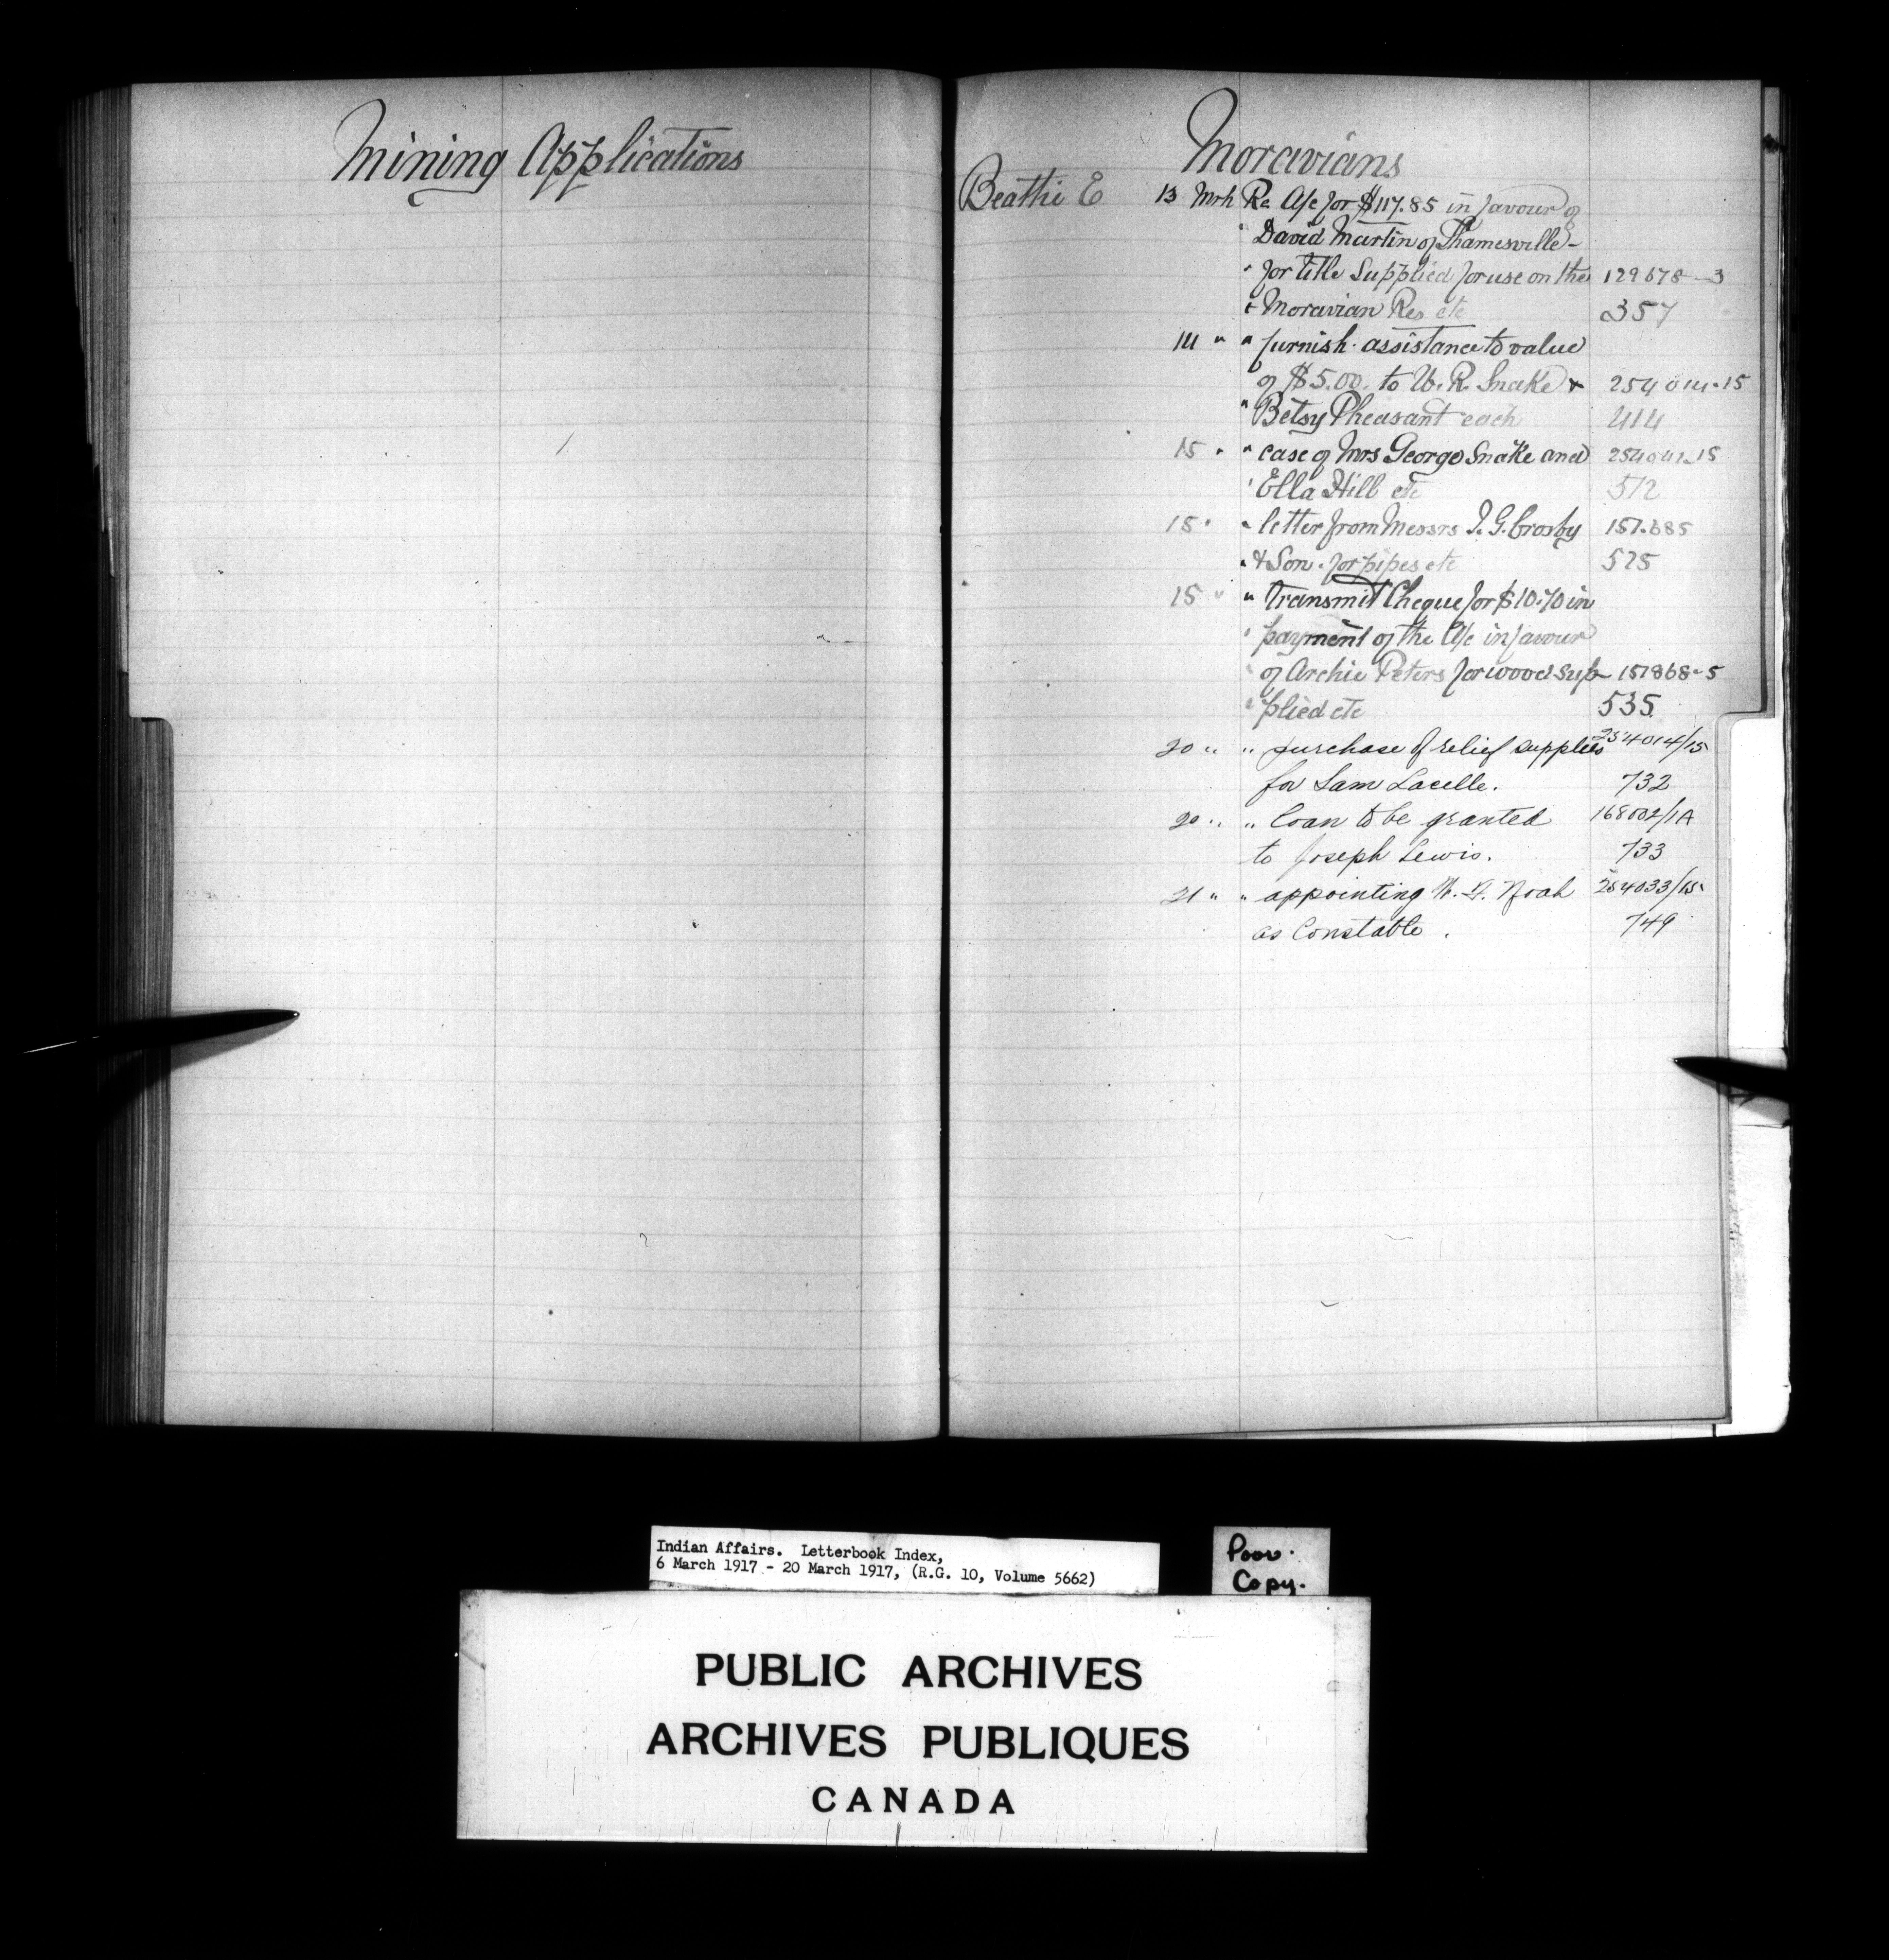 Mining Applications
Moravians
Beattie E 13 Mrh Re A/c for $117.85 in favour of
" David Martin of Thamesville -
" for title Supplied for use on the 129678-3
" Moravian Res etc 357
14 " " furnish assistance to value
of $5.00 to W. R. Snake & 254014-15
" Betsy Pheasant each 414
15 " " case of Mrs George Snake and 254041-15
" Ella Hill etc 512
15 " " letter from Messrs J. G. Crosby 157.685
" & Son. for pipes etc 525
15 " " transmit Cheque for $10.70 in
" payment of the A/c in favour
" of Archie Peters for wood sup- 157868-5
" plied etc 535
20 " " purchase of relief supplies 254014/15
for Sam Lacelle. 732
20 " " loan to be granted 168002/1A
to Joseph Lewis. 733
21 " " appointing Noah 254033/15
as Constable. 749
Indian Affairs. Letterbook Index,
6 March 1917 - 20 March 1917, (R.G. 10, Volume 5662)
Poor.
Copy.
PUBLIC ARCHIVES
ARCHIVES PUBLIQUES
CANADA